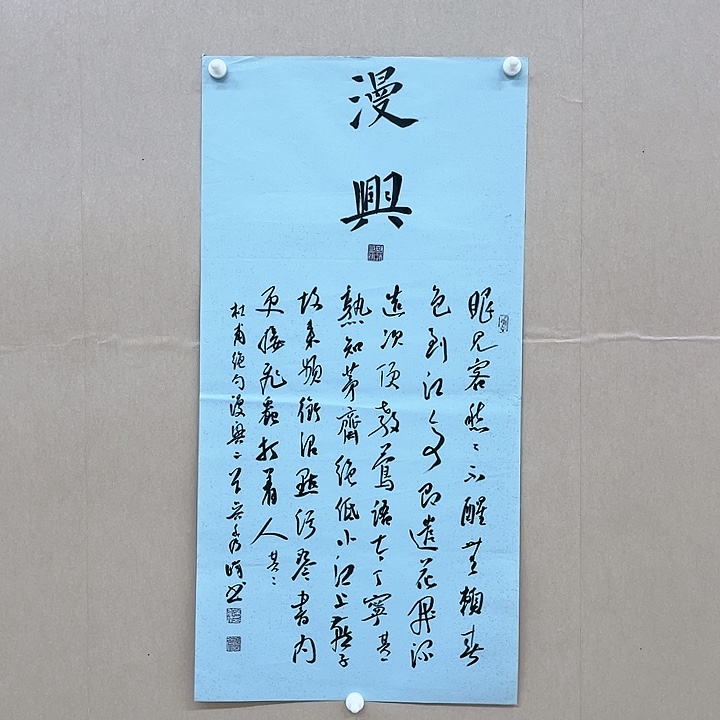 漫興
眼見客愁〻不醒無賴春
色到江亭即遣花開深
造次便教鶯語太丁寧其一
熟知茅齋絕低小江上燕子
故來頻銜泥點污琴書內
更接飛蟲打著人其二
杜甫絕句漫興二首書